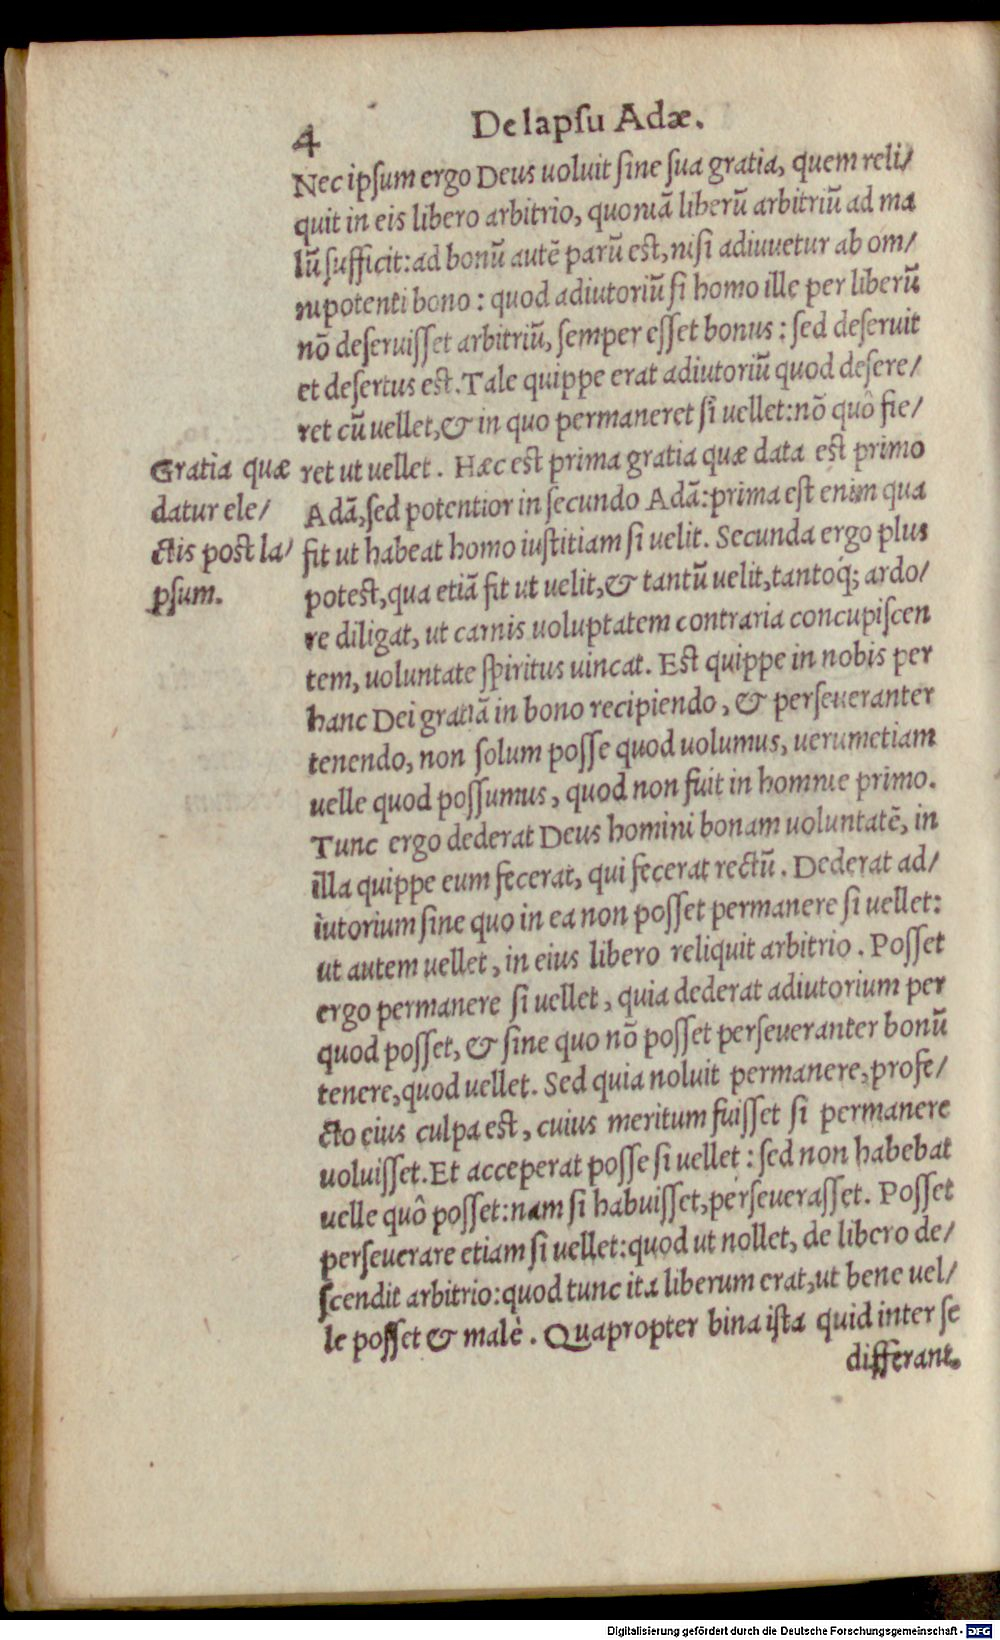 4
De lapſu Adæ.
Nec ipſum ergo Deus uoluit ſine ſua gratia, quem reli/
quit in eis libero arbitrio, quoniã liberũ arbitriũ ad ma
lũ ſufficit: ad bonũ autẽ parũ est, niſi adiuuetur ab om/
nipotenti bono : quod adiutoriũ ſi homo ille per liberũ
nõ deſeruiſſet arbitriũ, ſemper eſſet bonus : ſed deſeruit
et deſertus est. Tale quippe erat adiutoriũ quod deſere/
ret cũ uellet, & in quo permaneret ſi uellet: nõ quô fie/
ret ut uellet. Hæc est prima gratia quæ data est primo
Adã, ſed potentior in ſecundo Adã: prima est enim qua
fit ut habeat homo iuſtitiam ſi uelit. Secunda ergo plus
potest, qua etiã fit ut uelit, & tantũ uelit, tantoq́; ardo/
re diligat, ut carnis uoluptatem contraria concupiſcen
tem, uoluntate ſpiritus uincat. Est quippe in nobis per
hanc Dei gratiã in bono recipiendo, & perſeueranter
tenendo, non ſolum poſſe quod uolumus, uerumetiam
uelle quod poſſumus, quod non fuit in homine primo.
Tunc ergo dederat Deus homini bonam uoluntatẽ, in
illa quippe eum fecerat, qui fecerat rectũ. Dederat ad/
iutorium ſine quo in ea non poſſet permanere ſi uellet:
ut autem uellet, in eius libero reliquit arbitrio. Poſſet
ergo permanere ſi uellet, quia dederat adiutorium per
quod poſſet, & ſine quo nõ poſſet perſeueranter bonũ
tenere, quod uellet. Sed quia noluit permanere, profe/
cto eius culpa est, cuius meritum fuiſſet ſi permanere
uoluiſſet. Et acceperat poſſe ſi uellet : ſed non habebat
uelle quô poſſet: nam ſi habuiſſet, perſeueraſſet. Poſſet
perſeuerare etiam ſi uellet: quod ut nollet, de libero de/
ſcendit arbitrio: quod tunc ita liberum erat, ut bene uel/
le poſſet & malè. Quapropter bina iſta quid inter ſe
differant.
Gratia quæ
datur ele/
ctis post la/
pſum.
Digitalisierung gefördert durch die Deutsche Forschungsgemeinschaft - DFG